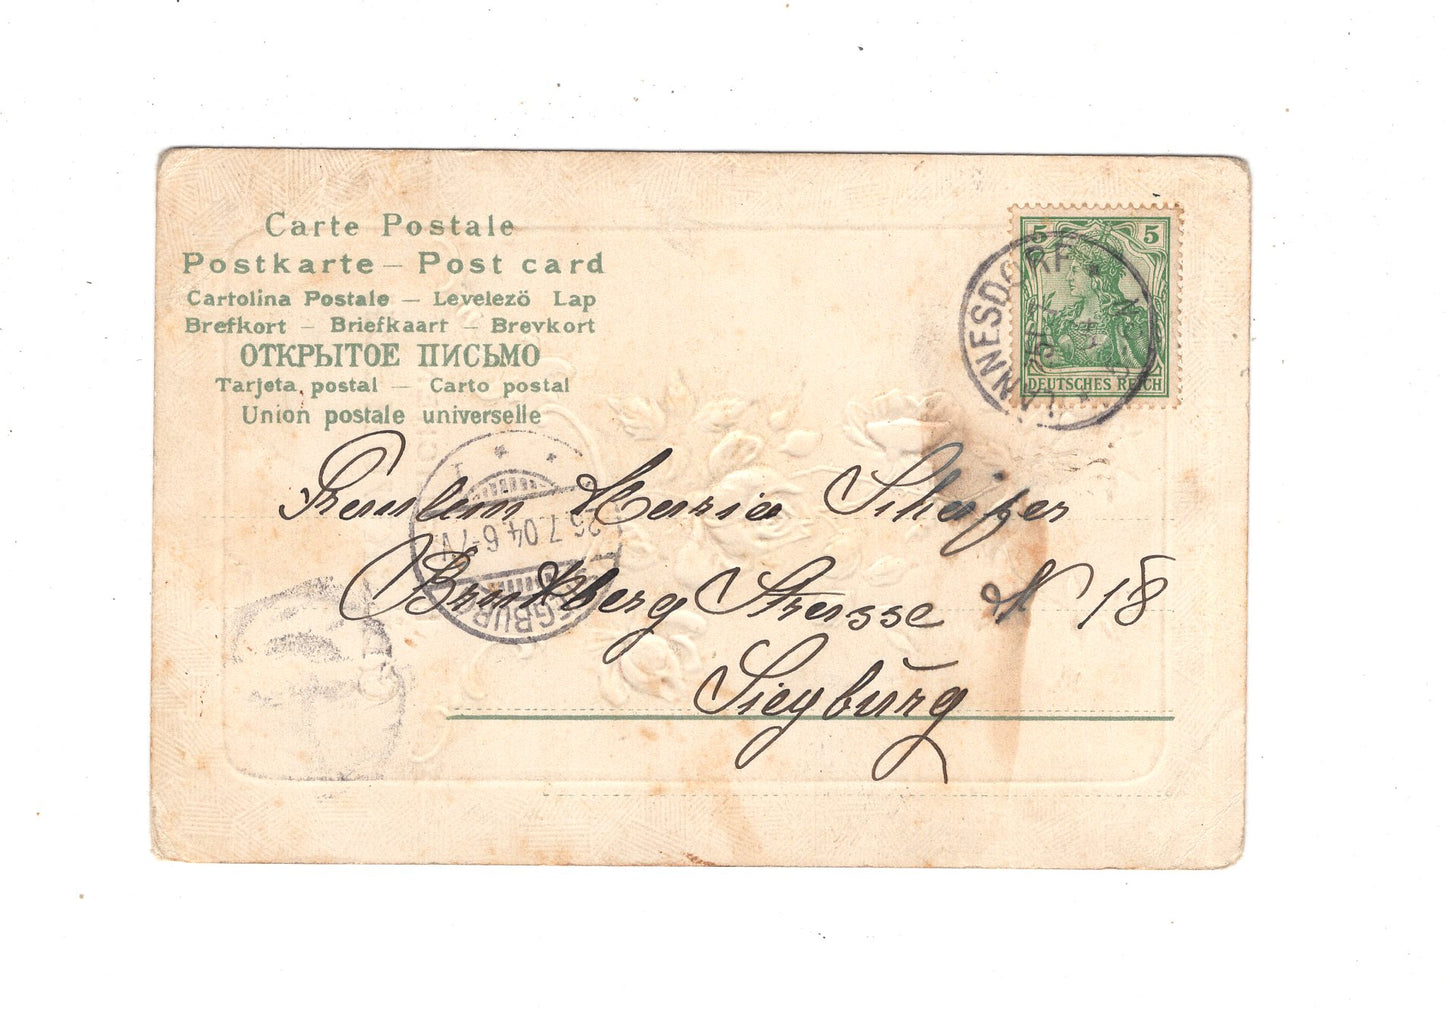 Carte Postale
Postkarte – Post card
Cartolina Postale – Levelező Lap
Brefkort – Briefkaart – Brevkort
ОТКРЫТОЕ ПИСЬМО
Tarjeta postal – Carto postal
Union postale universelle
5 5
DEUTSCHES REICH
LANNESDORF
Fräulein Maria Schäfer
26.7.04.6-7
SIEGBURG
Strasse N 18
Siegburg